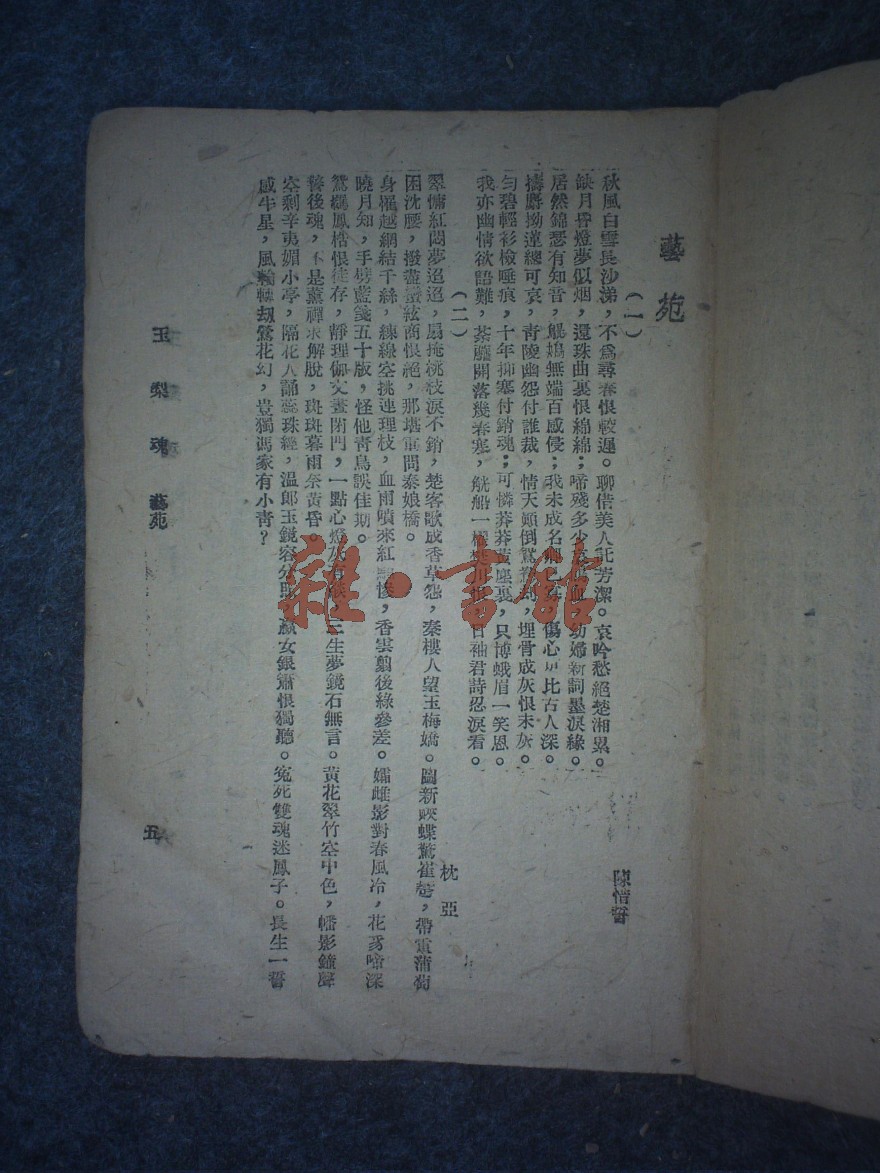 藝苑
(一)
陳惜誓
秋風白雪長沙涕,不爲尋春恨較遲。聊借美人託芳潔。哀吟愁絕楚湘纍。
缺月昏燈夢似烟,還珠曲裏恨綿綿;啼殘多少 血,幼婦新詞墨淚緣。
居然錦瑟有知音,鶗鴂無端百感侵;我未成名 傷心 比古人深。
擣麝拗蓮總可哀,青陵幽怨付誰裁,情天顚倒鴛鴦 ,埋骨成灰恨未灰。
勻碧輕衫檢唾痕,十年抑塞付銷魂;可憐莽莽黃塵裏,只博蛾眉一笑恩。
我亦幽情欲語難,荼蘼開落幾春寒,觥船一櫂 袖君詩忍淚看。
(二)
枕亞
翠慵紅悶夢迢迢,扇掩桃枝淚不銷,楚客歌成香草怨,秦樓人望玉梅嬌。圖新峽蝶驚崔 ,帶重蒲萄
困沈腰,撥盡 絃商恨絕,那堪重問泰娘橋。
身罹越網結千絲,練綠空挑連理枝,血雨噴來紅 慘,香雲翦後綠參差。孀雌影對春風冷,花 啼深
曉月知,手劈藍箋五十版,怪他青鳥誤佳期。
鴛 鳳梏恨徒存,靜理伽文晝閉門,一點心燈灰有 ,三生夢鏡石無言。黃花翠竹空中色,幡影鐘聲
後魂,不是薰禪求解脫,斑斑暮雨 黃昏。
空剩辛夷媚小亭,隔花人誦蕊珠經,溫郎玉鏡容分照,嬴女銀簫恨獨聽。寃死雙魂迷鳳子。長生一誓
感牛星,風輪 劫鶯花幻,豈獨馮家有小青?
玉梨魂 藝苑
五
雜·書館